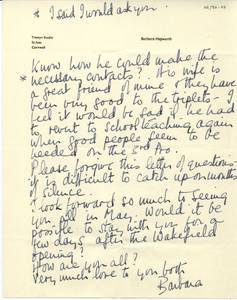 * I said I would ask you.
Trewyn Studio
St. Ives
Cornwall
Barbara Hepworth
Know how he could make the
necessary contacts? His wife is
a great friend of mine & they have
been very good to the triplets - I
feel it would be sad if he had
to revert to schoolteaching again
when good people seem to be
needed on the 3rd
Please forgive this letter of questions -
it is difficult to catch up on months
of silence.
I look forward so much to seeing
you all in May. Would it be
possible to stay with you for a
few days after the Wakefield
opening?
How are you all?
Very much love to you both
Barbara